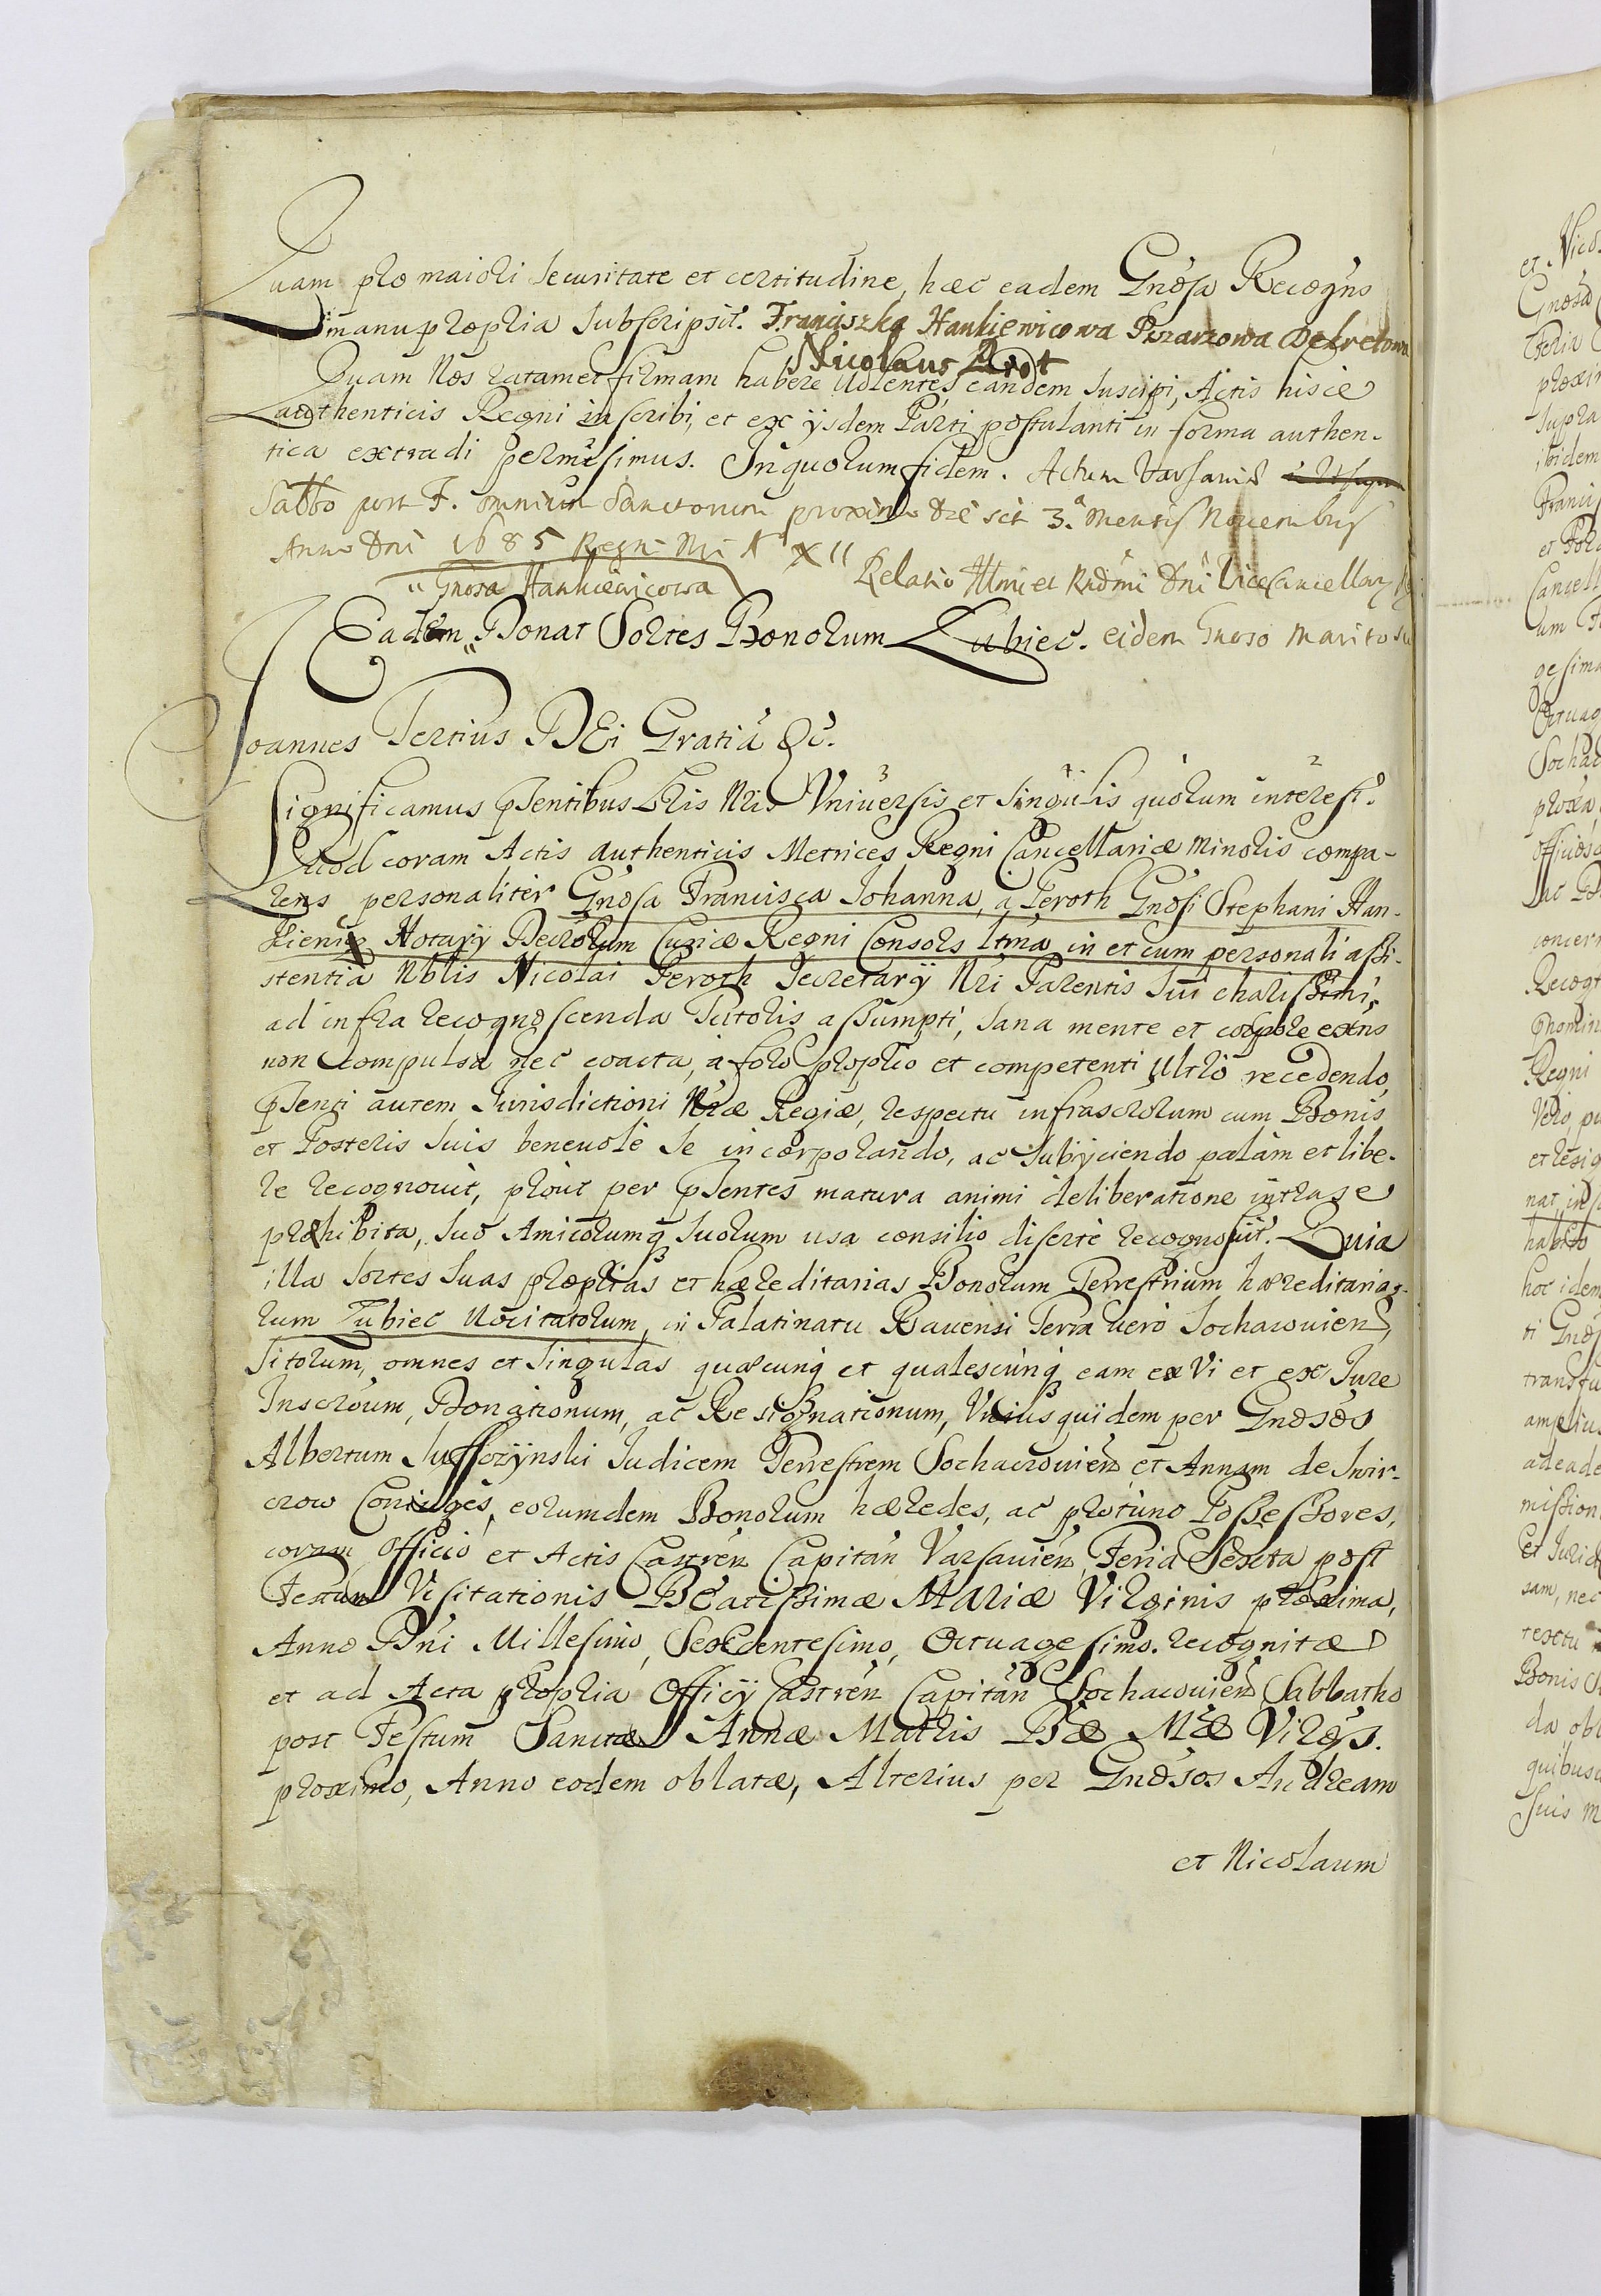 Quam pro maiori securitate et certitudine, haec eadem Gnosa Recogns
manu propria subscripsit. Franciszka Hankiewicowa Pisarzowa Dekretowa
Nicolaus Prot
Quam Nos ratam et firmam habere volentes, eandem suscipi, Actis hisce
authenticis Regni inscribi, et ex ijsdem Parti postulanti in forma authen-
tica extradi permisimus. In quorum fidem. Actum Varsaviae
Sabbo post F. omnium Sanctorum proximo die sci 3.a mensis Novembris
Anno Dni 1685 Regni Nri XII
Relatio Illmi et Rndmi Dni Vicecancellarij
Gnosa Hankiewicowa
Eadem Donat Sortes Bonorum Lubiec. eidem Gnoso Marito suo
Joannes Tertius DEi Gratia &c.
Significamus psentibus Lris Nris Universis et singulis quorum interest.
Quod coram Actis authenticis Metrices Regni Cancellariae Minoris compa-
rens personaliter Gnosa Francisca Johanna, a Peroth Gnosi Stephani Han-
kiewicz Notarij Decrorum Curiae Regni Consors ltma in et cum personali assi-
stentia Nblis Nicolai Peroth Secretarij Nri Parentis sui charissimi,
ad infra recognoscenda Tutoris assumpti, sana mente et corpore exns
non compulsa nec coacta, a foro proprio et competenti ultro recedendo,
psenti autem Jurisdictioni Nrae Regiae, respectu infrascrorum cum Bonis
et Posteris suis benevole se incorporando, ac subijciendo palam et libe-
re recognovit, prout per psentes matura animi deliberatione intra se
praehibita, suo Amicorumq suorum usa consilio diserte recognoscit. Quia
illa sortes suas proprias et haereditarias Bonorum Terrestrium haereditario-
rum Lubiec vocitatorum, in Palatinatu Ravensi Terra vero Sochacovien
sitorum, omnes et singulas quascunq et qualescunq eam ex Vi et ex Jure
Inscroum, Donationum, ac Resignationum, Unius quidem per Gnosos
Albertum Suffczynski Judicem Terrestrem Sochacovien et Annam de Swir-
czow Coniuges, eorumdem Bonorum haeredes, ac protunc Possessores,
coram Officio et Actis Castren Capitan Varsavien Feria Sexta post
Festum Visitationis Beatissimae Mariae Virginis proxima,
Anno Dni Millesimo, Sexcentesimo, Octuagesimo. recognitae
et ad Acta propria Officij Castren Capitan Sochacovien Sabbatho
post Festum Sanctae Annae Matris Bae Mae Virgs.
proximo, Anno eodem oblatae, Alterius per Gnosos Andream
et Nicolaum